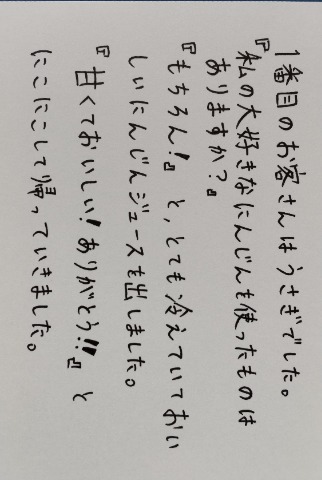 1番目のお客さんはうさぎでした。
『私の大好きなにんじんを使ったものは
ありますか?』
『もちろん!』と、とても冷えていておい
しいにんじんジュースを出しました。
『甘くておいしい!ありがとう!!』と
にこにこして帰っていきました。